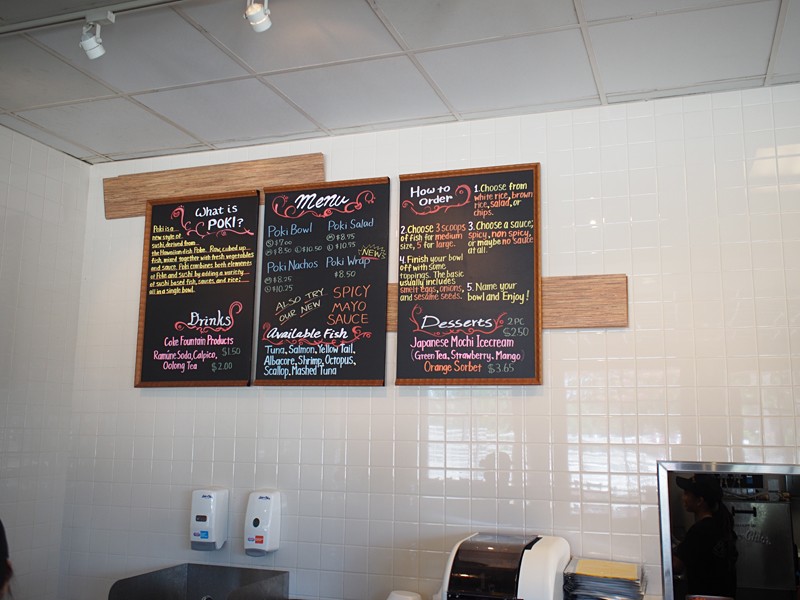 What is
POKI?
Poki is a
new style of
sushi, derived from
the Hawaiian fish Poke. Raw, cubed up
fish, mixed together with fresh vegetables
and sauce. Poki combines both elements
of Poke and sushi by adding a variety
of sushi based fish, sauces, and rice;
all in a single bowl.
Drinks
Coke Fountain Products
$1.50
Ramune Soda, Calpico,
Oolong Tea $2.00
Menu
Poki Bowl
Ⓢ $7.00
Ⓜ $8.50 Ⓛ $10.50
Poki Salad
Ⓜ $8.95
Ⓛ $10.95
NEW
Poki Nachos
Ⓜ $8.25
Ⓛ $10.25
Poki Wrap
$8.50
ALSO TRY
OUR NEW
SPICY
MAYO
SAUCE
Available Fish
Tuna, Salmon, Yellow Tail,
Albacore, Shrimp, Octopus,
Scallop, Mashed Tuna
How to
Order
1. Choose from
white rice, brown
rice, salad, or
chips.
2. Choose 3 scoops
of fish for medium
size, 5 for large.
3. Choose a sauce;
spicy, non spicy,
or maybe no sauce
at all.
4. Finish your bowl
off with some
toppings. The basic
usually includes
smelt eggs, onions,
and sesame seeds.
5. Name your
bowl and Enjoy!
Desserts
2 PC
$2.50
Japanese Mochi Icecream
(Green Tea, Strawberry, Mango)
Orange Sorbet $3.65